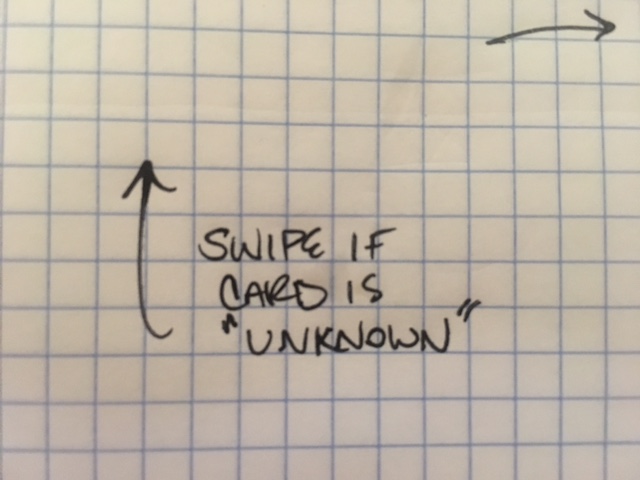 SWIPE IF
CARD IS
"UNKNOWN"